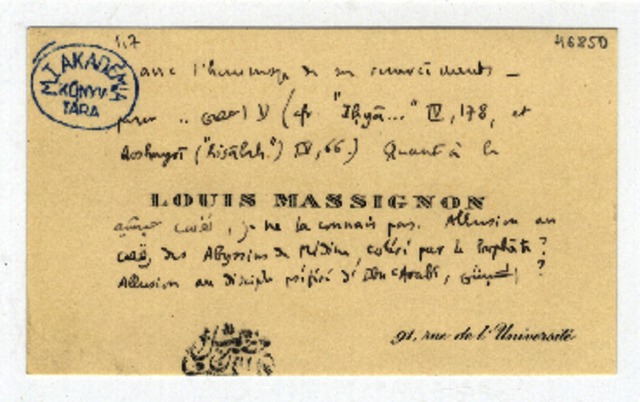 1.7
46850
M.T. AKADÉMIA KÖNYVTÁRA
avec l'hommage de ses remerciements —
pour .. (cfr "Iḥyā..." IV, 178, et
Qoshayrî ("Risâlah.") IV, 66.) Quant à la
LOUIS MASSIGNON
, je ne la connais pas. Allusion au
des Abyssins de Médine, toléré par le Prophète ?
Allusion au disciple préféré d'Ibn ʿArabî, ?
91, rue de l'Université